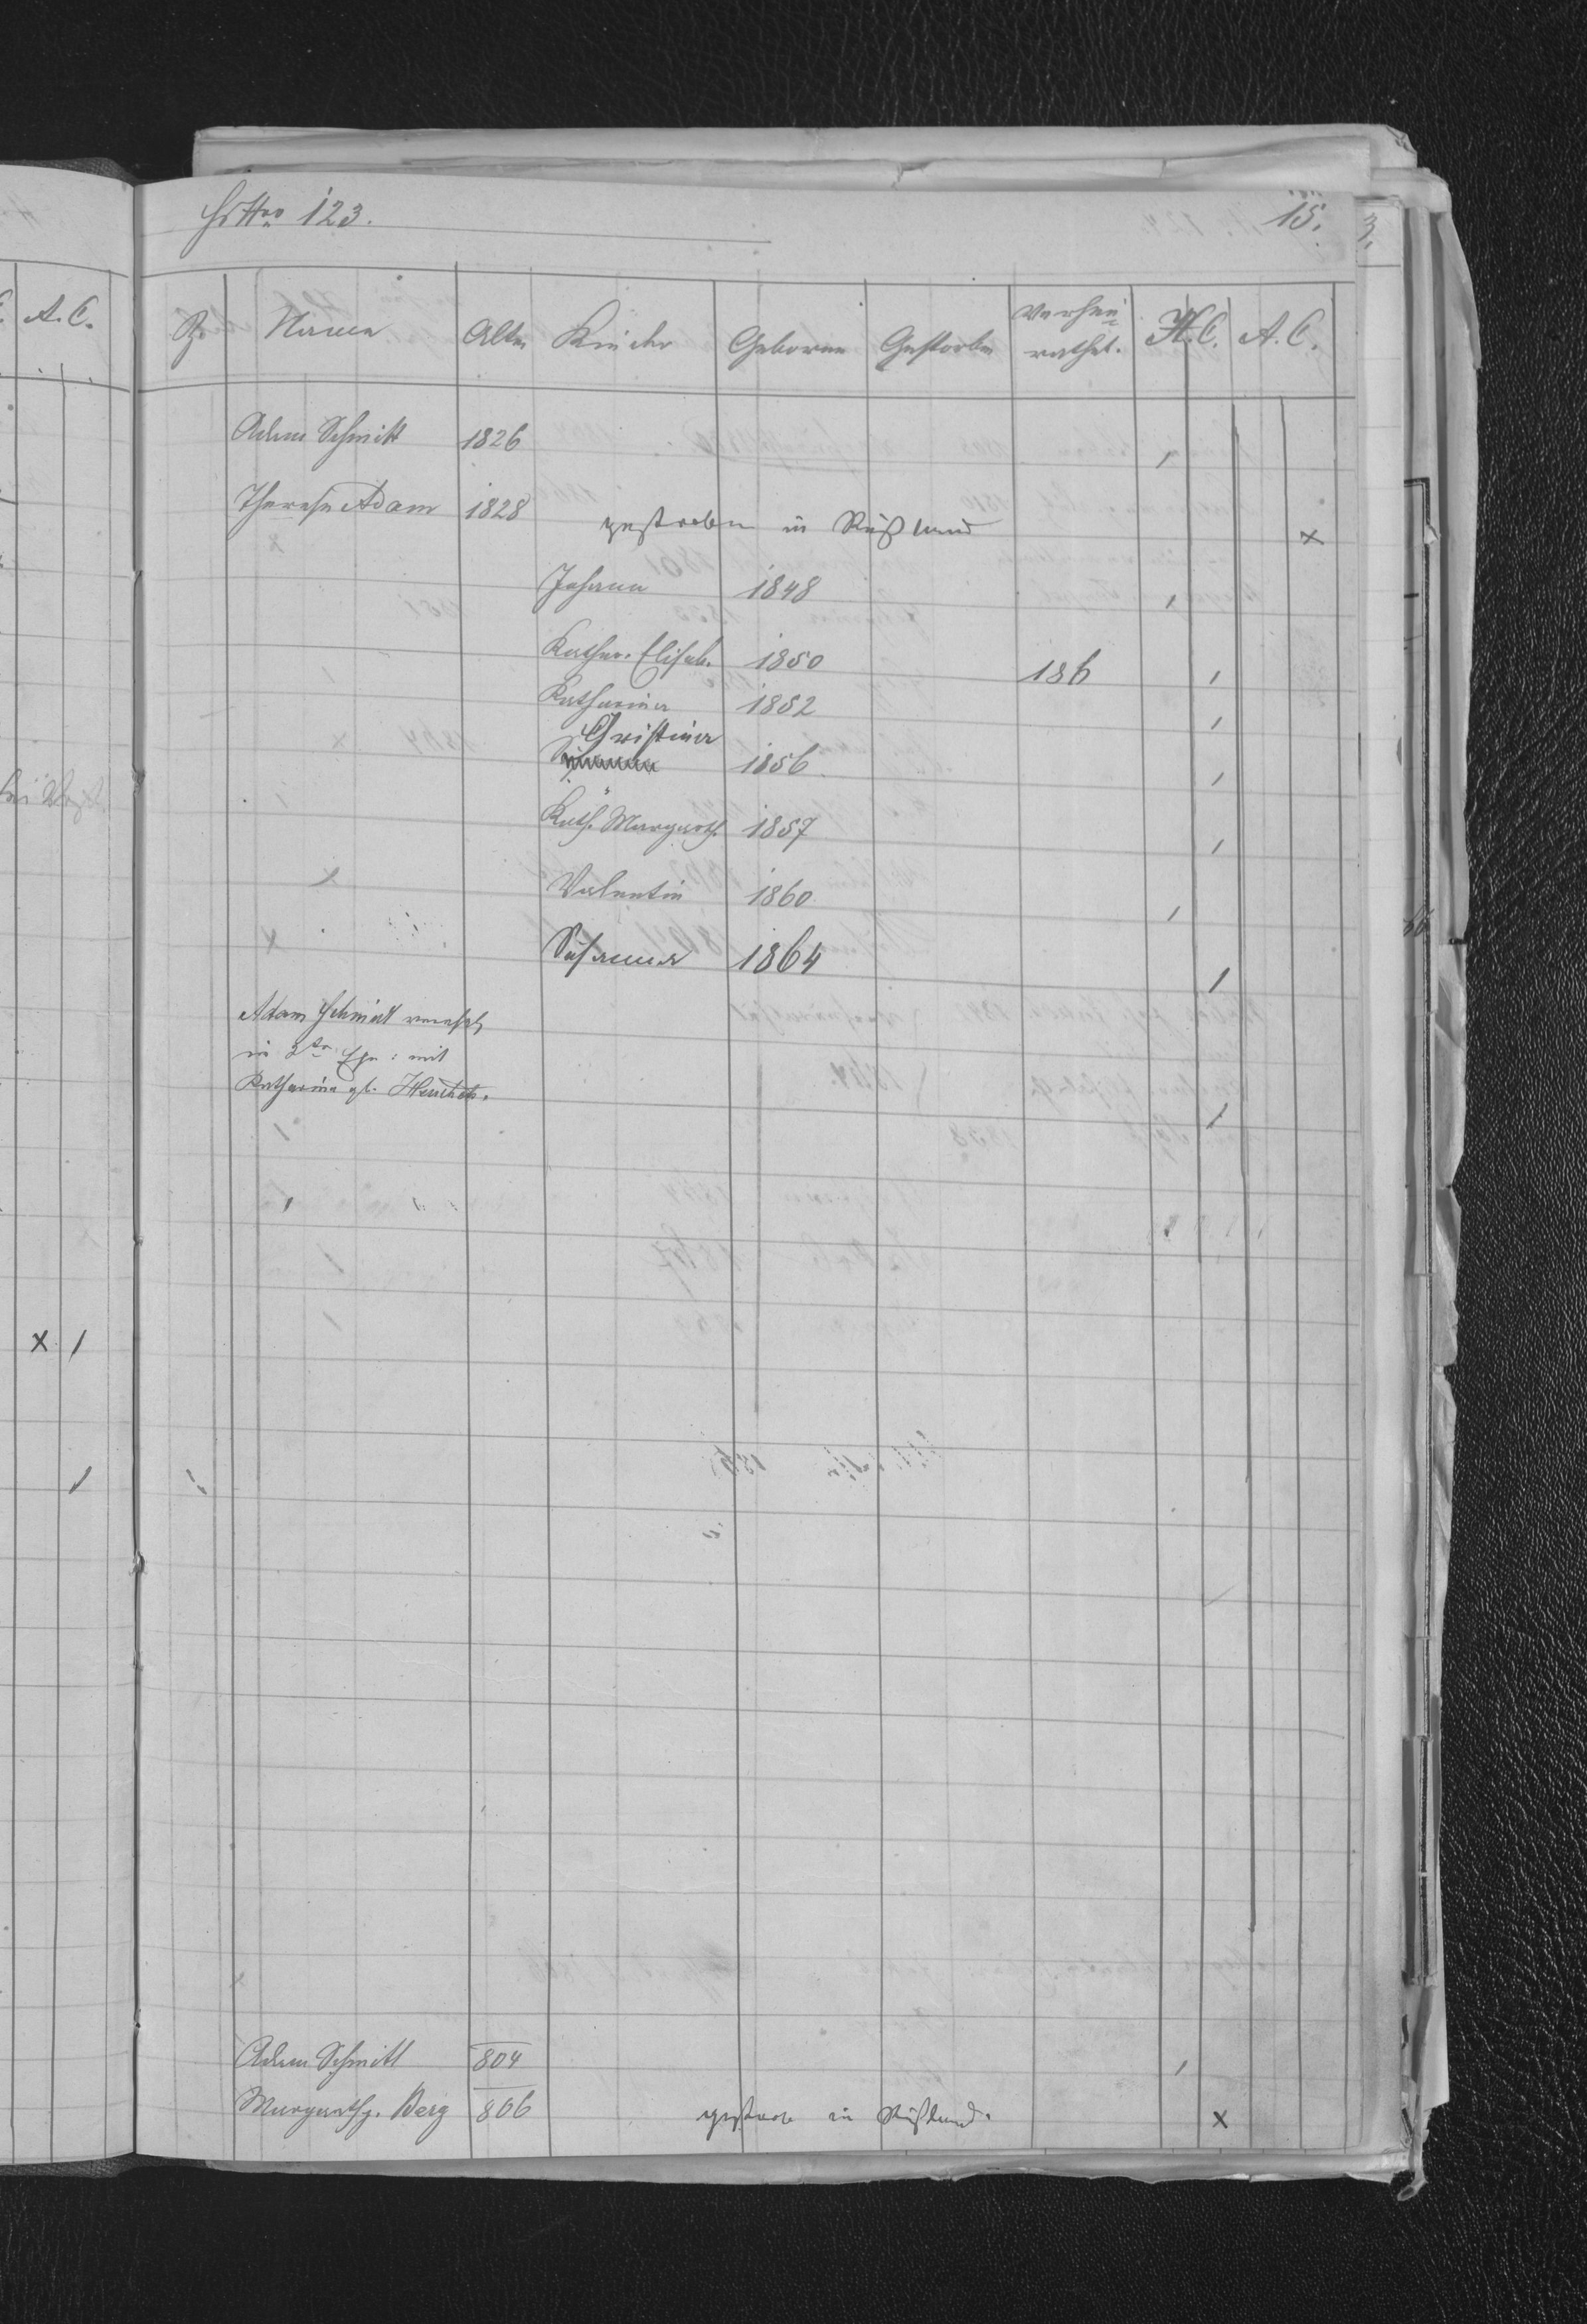 123.
15.
Namen Alter Kinder Geboren Gestorben Verhei=
rathet. H.C. A.C.
Adam Schmitt 1826
Therese Adam 1828 gestorben in Rußland x
Johann 1848
Kathar. Elisab. 1850 186
Katharina 1852
Christina
1856
Kath. Margareth. 1857
Valentin 1860
Susanna 1864
Adam Schmitt verehel.
in 2ter Ehe: mit
Katharina gb.
Adam Schmitt 804
Margareth g. Berg 806 gestorb in Rußland. x
A.C.
x 1
1